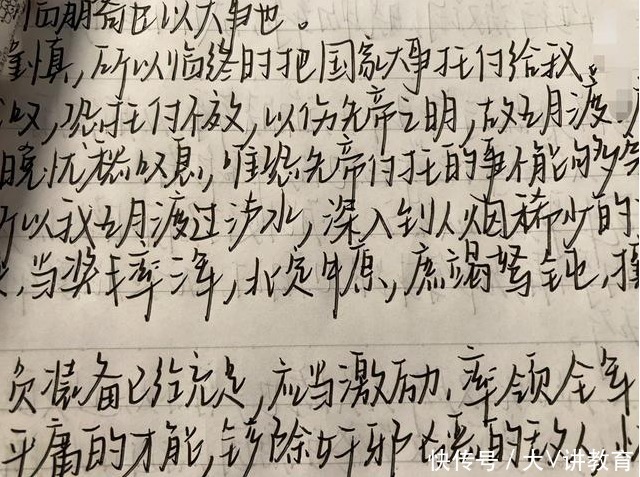 临崩寄臣以大事也。
谨慎,所以临终时把国家大事托付给我
叹,恐托付不效,以伤先帝之明,故五月渡
晚忧愁叹息,唯恐先帝付托的事不能够
所以我五月渡过泸水,深入到人烟稀少的
当奖率三军,北定中原,庶竭驽钝,攘
员装备已经充足,应当激励,率领全军
平庸的才能,铲除奸邪凶恶的敌人
快传号 / 大V讲教育